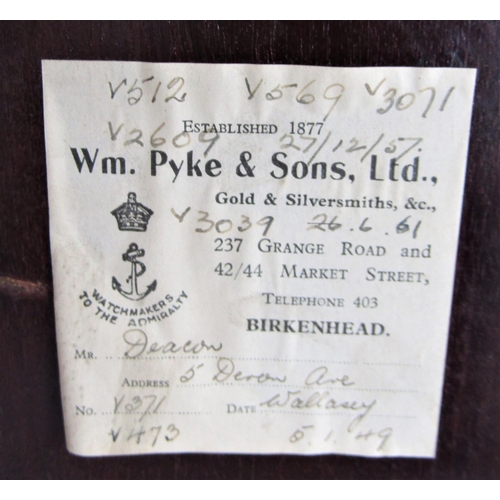 V512 V569 V3071
ESTABLISHED 1877
V2609 27/12/57.
Wm. Pyke & Sons, Ltd.,
Gold & Silversmiths, &c.,
V3039 26.6.61
237 GRANGE ROAD and
42/44 MARKET STREET,
WATCHMAKERS
TO THE ADMIRALTY
TELEPHONE 403
BIRKENHEAD.
MR. Deacon
ADDRESS 5 Devon Ave
NO. V371 DATE Wallasey
V473 5.1.49